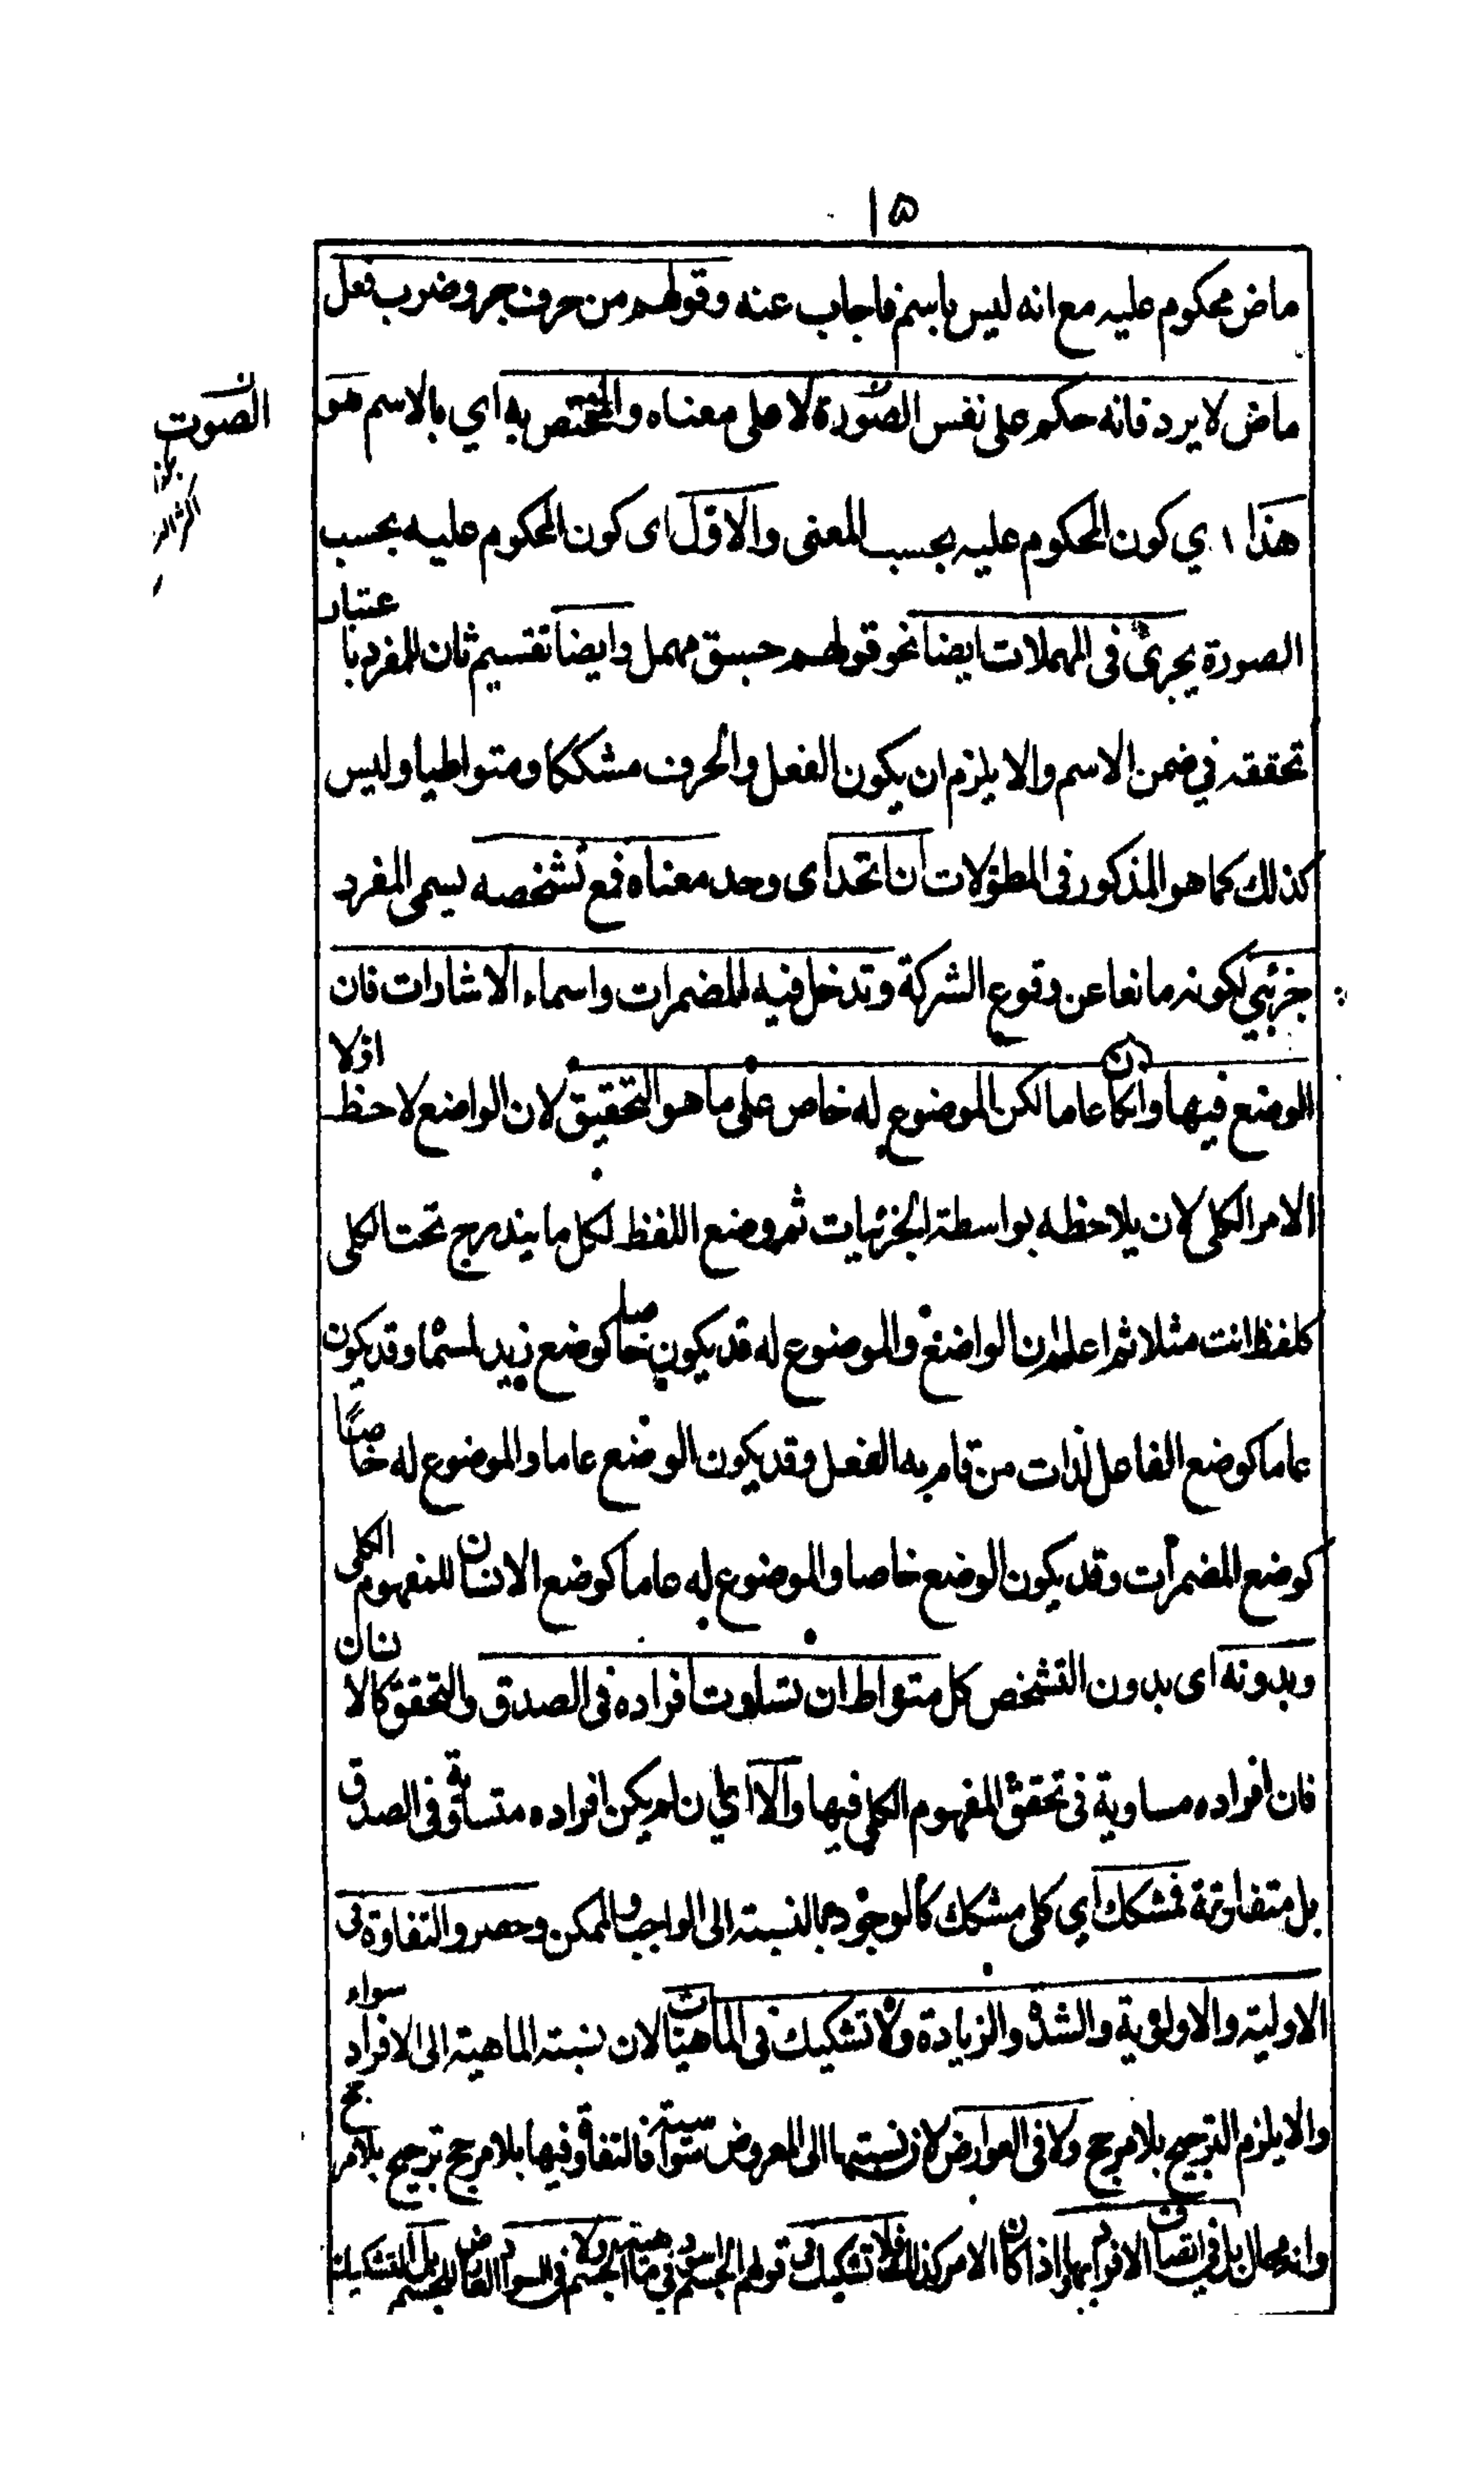 ١٥
ماض محكوم عليه مع انه ليس باسم فاجاب عنه وقولهم من حرف جر وضرب فعل
ماض لا يرد فانه حكم على نفس الصورة لا على معناه والمختص به اي بالاسم هو
الصوت
هذا اي كون المحكوم عليه بحسب المعنى والاول اى كون المحكوم عليه بحسب
الصورة يجرى فى المهملات ايضا نحو قولهم جسق مهمل وايضا تقسيم ثان للمفرد باعتبار
تحققه في ضمن الاسم والا يلزم ان يكون الفعل والحرف مشككا ومتواطيا وليس
كذلك كما هو المذكور فى المطولات ان اتحد اى وحد معناه فمع تشخصه يسمى المفرد
جزئي لكونه مانعا عن وقوع الشركة وتدخل فيه المضمرات واسماء الاشارات فان
الوضع فيها وانكان عاما لكن الموضوع له خاص على ما هو التحقيق لان الواضع لاحظ اولا
الامر الكلى لان يلاحظه بواسطة الجزئيات ثم وضع اللفظ لكل ما يندرج تحت الكلى
كلفظ انت مثلا ثم اعلم ان الواضع والموضوع له قد يكون خاصا كوضع زيد لمسمما وقد يكون
عاما كوضع الفاعل لذات من قام به الفعل وقد يكون الوضع عاما والموضوع له خاصًا
كوضع المضمرات وقد يكون الوضع خاصا والموضوع له عاما كوضع الانسان للمفهوم الكلى
وبدونه اى بدون التشخص كل متواط ان تساوت افراده فى الصدق والتحقق كالانسان
فان افراده مساوية فى تحقق المفهوم الكلى فيها والا اي ان لم يكن افراده متساوية فى الصدق
بل متفاوتة فمشكك اي كلى مشكك كالوجود بالنسبته الى الواجب والممكن وحصروا التفاوة فى
الاولية والاولوية والشدة والزيادة ولا تشكيك فى الماهيات لان نسبته الماهية الى الافراد سواء
والا يلزم الترجيح بلا مرجح ولا فى العوارض لان نسبتها الى المعروض متواسية فالتفاوة فيها بلا مرجح ترجيح بلا مرجح
وانه محال بل في اتصاف الافراد بها واذا كان الامر كذلك فلا تشكيك فى قولهم الجسم اسود فى ماهية الجسم ولا فى السواد العارض للجسم بل التشكيك